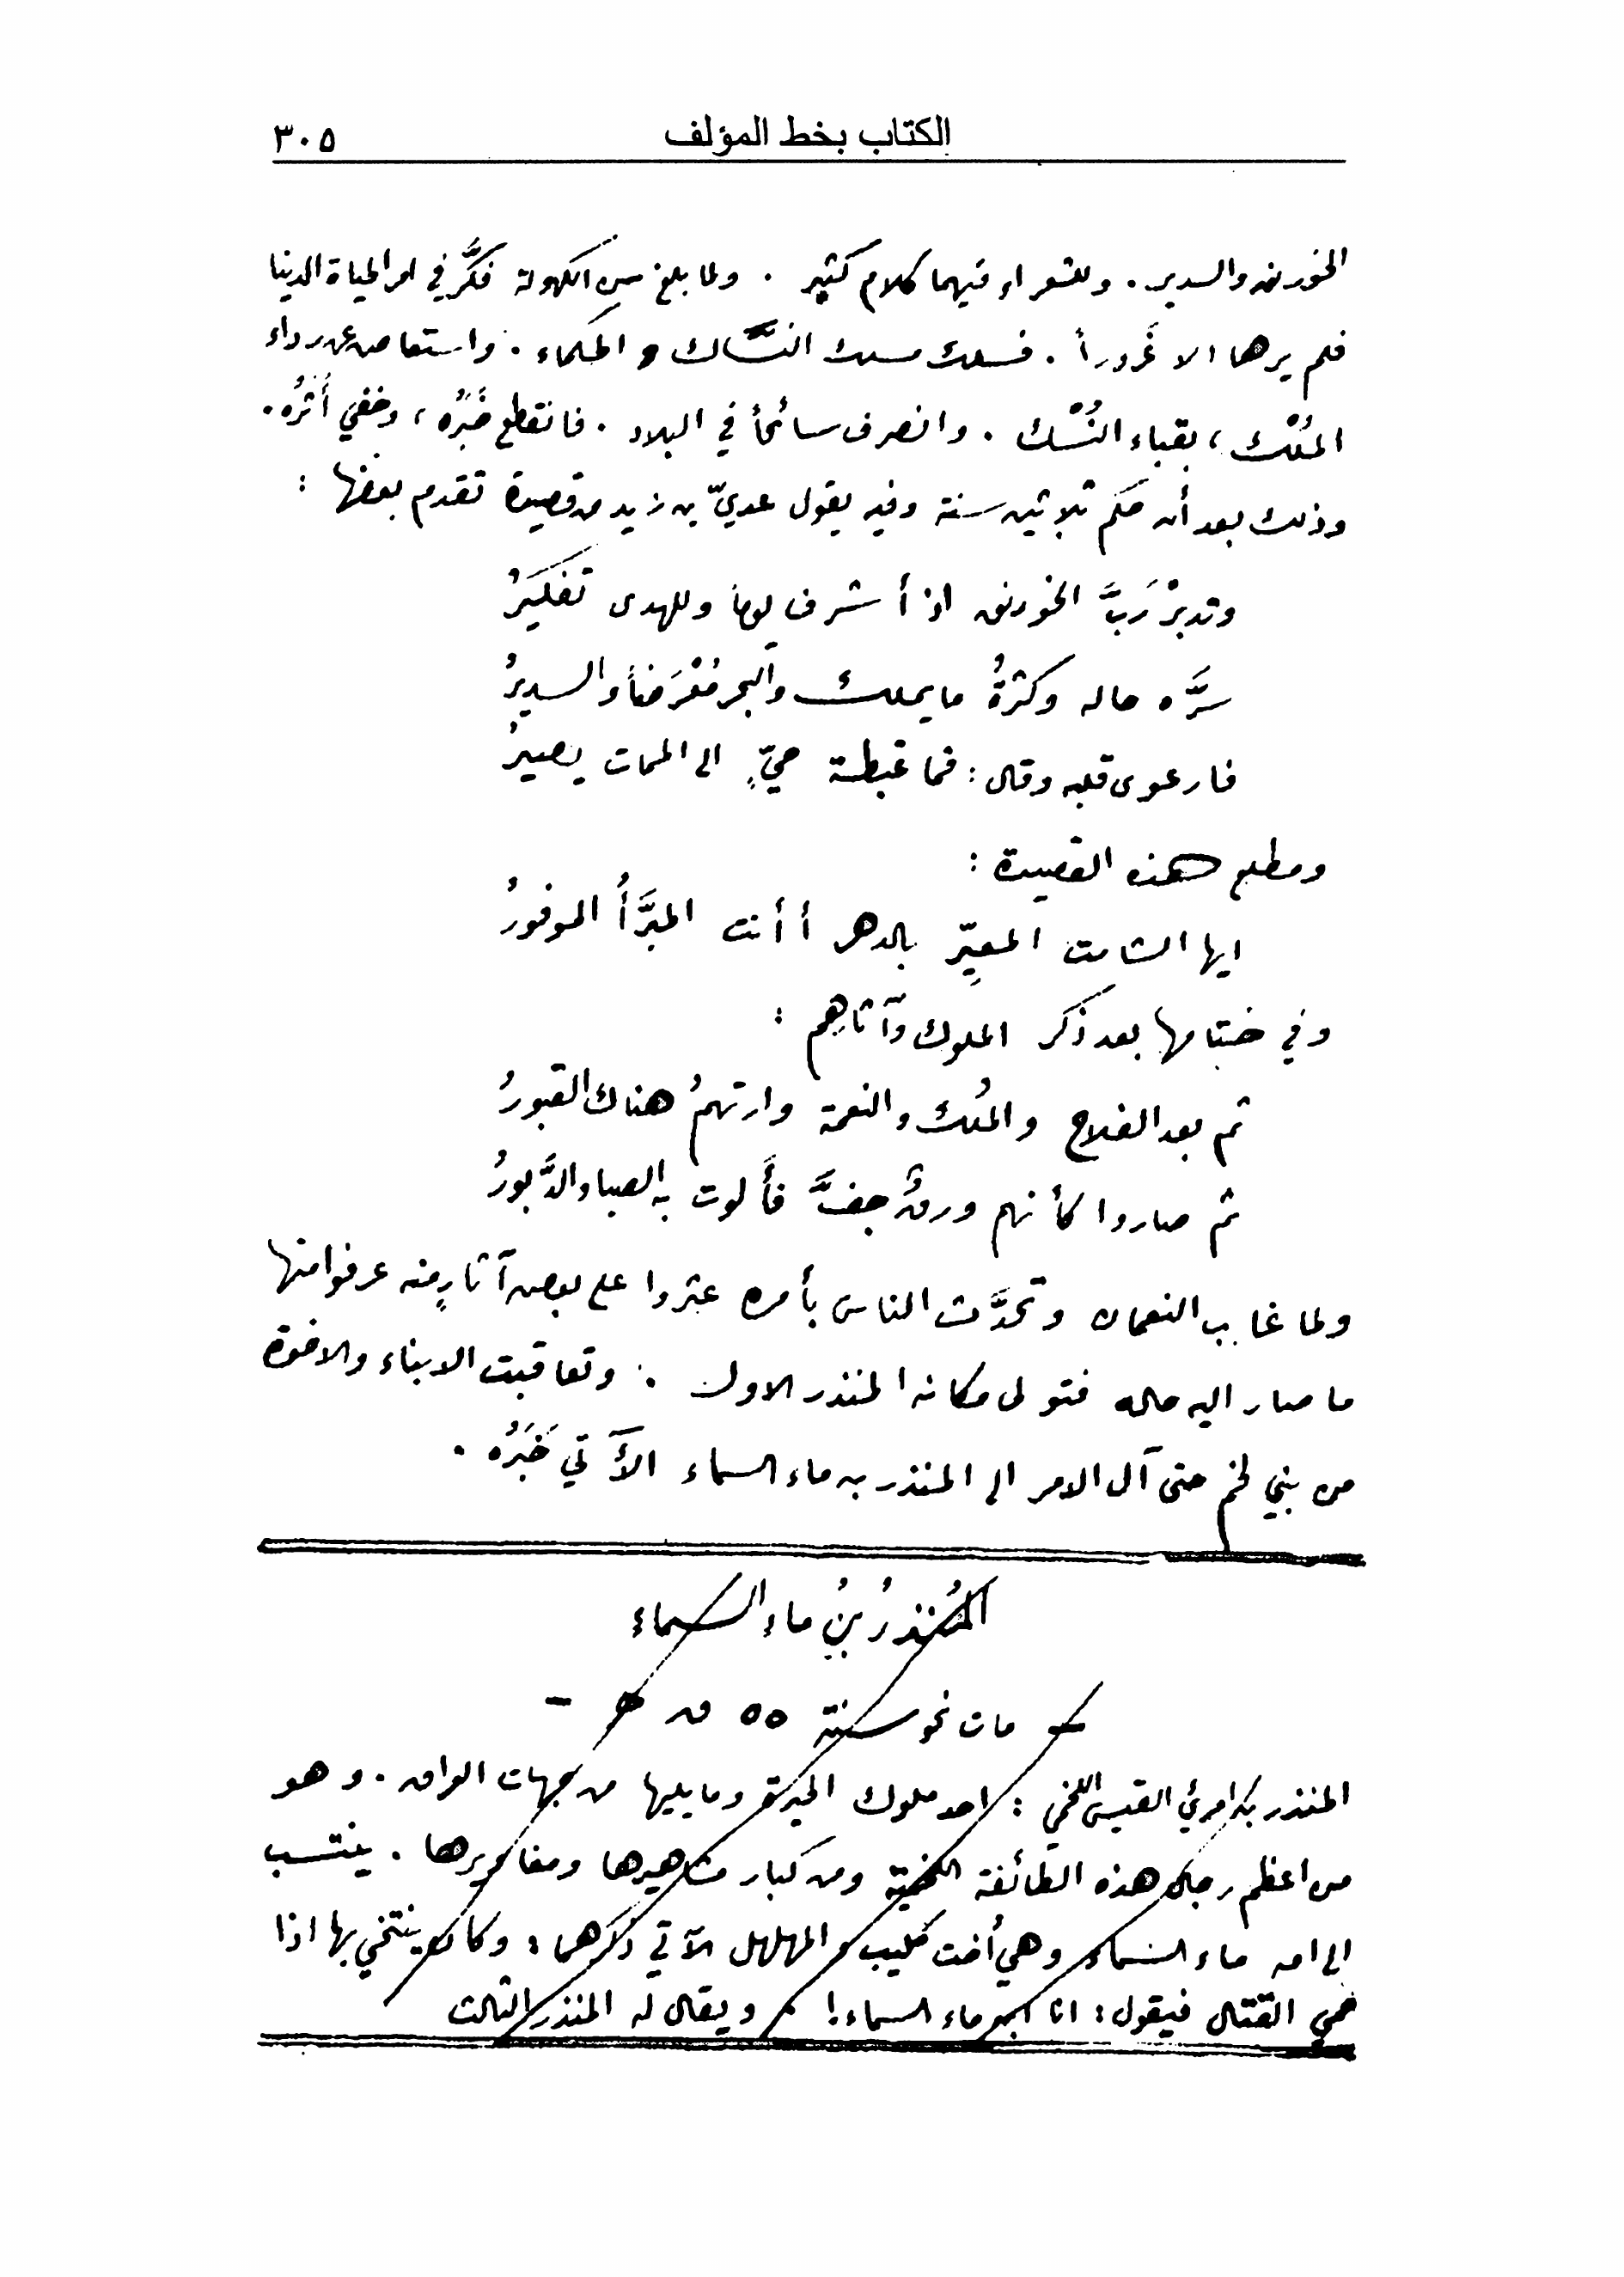 الكتاب بخط المؤلف ٣٠٥
الخورنق والسدير . وللشعراء فيهما كلام كثير . ولما بلغ سن الكهولة فكَّر في امر الحياة الدنيا
فلم يرها الا غُروراً . فسلك مسلك النسَّاك والحكماء . واستعاض عن رداء
المُلْك ، بقباء النُسْك . وانصرف سائحاً في البلاد . فانقطع خَبَرُه ، وخفيَ أَثرُه .
وذلك بعد أن حكم ثلاثين سنة وفيه يقول عديّ بن زيد من قصيدة تقدم بعضها :
وتدبرْ رَبَّ الخورنق اذ أشرف يوماً وللهدى تفكيرُ
سرَّه حاله وكثرةُ ما يملك والبحر مُعْرَضاً والسديرُ
فارعوى قلبه وقال : فما غبطة حيٍّ الى الممات يصيرُ
ومطلع هذه القصيدة :
ايها الشامت المعيِّر بالدهر أأنت المبرَّأُ الموفورُ
وفي ختامها بعد ذكر الملوك وآثارهم :
ثم بعد الفلاح والمُلك والنعمة وارتهمُ هناك القبورُ
ثم صاروا كأنهم ورقٌ جفَّ فأَلوت به الصبا والدَّبورُ
ولما غاب النعمان وتحدَّث الناس بأمره عثروا على بعض آثارٍ منه عرفوا منها
ما صار اليه حاله فتولى مكانه المنذر الاول . وتعاقبت الابناء والاخوة
من بني لخم حتى آل الامر الى المنذر بن ماء السماء الآتي خَبَرُه .
المُنذرُ بنُ ماءِ السماءِ
— مات نحو سنة ٥٥ ق ه —
المنذر بن امرئ القيس اللخمي : احد ملوك الحيرة وما يليها من جهات العراق . وهو
من اعظم رجال هذه الطائفة اللخمية ومن كبار مشاهيرها ومغاويرها . ينتسب
الى امه ماء السماء وهي أخت كليب والمهلهل الآتي ذكرهما ؛ وكان ينتخي بها اذا
حمي القتال فيقول : انا ابن ماء السماء ! . ويقال له المنذر الثالث